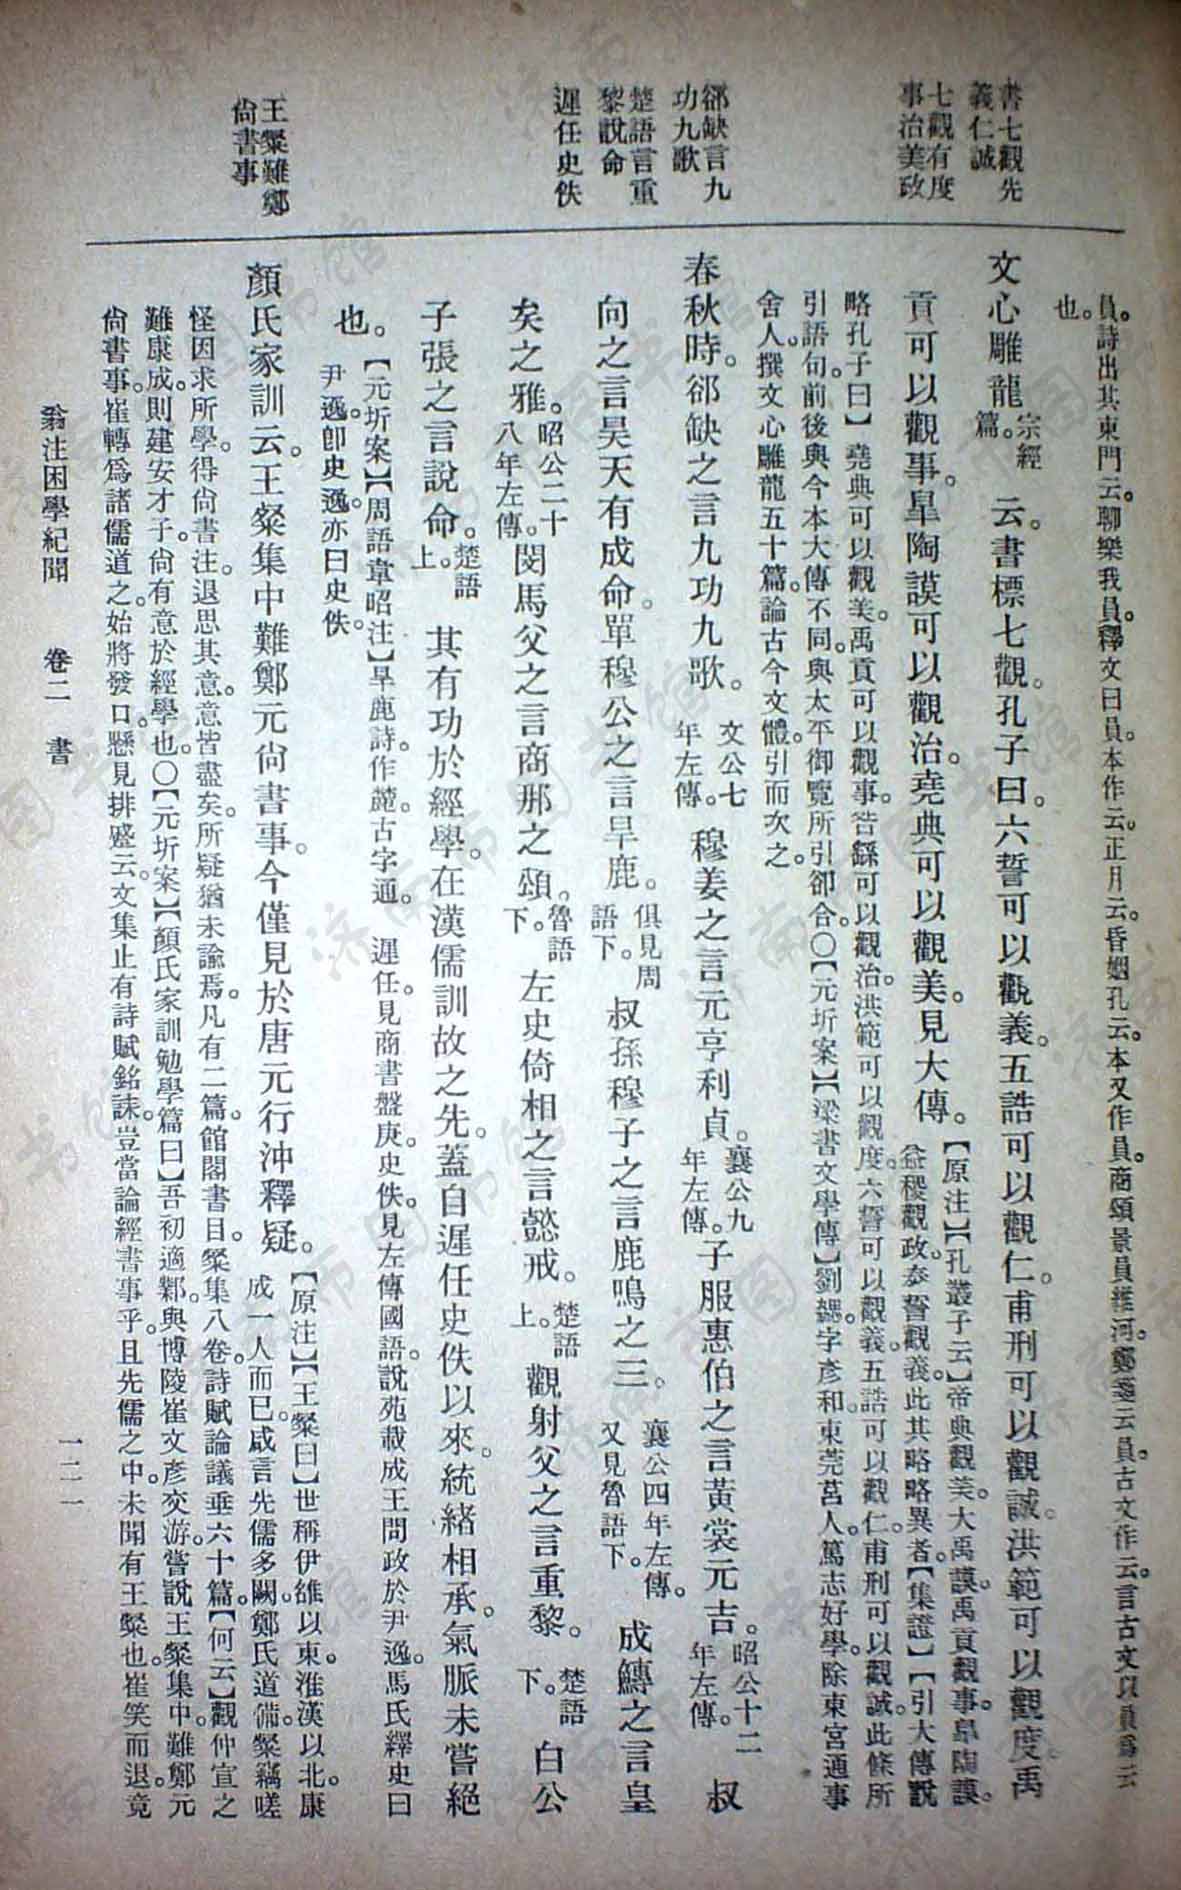 書七觀先
義仁誠
七觀有度
事治美政
郤缺言九
功九歌
楚語言重
黎說命
遲任史佚
王粲難鄭
尙書事
員。詩出其東門云。聊樂我員。釋文曰員。本作云。正月云。昏姻孔云。本又作員。商頌景員維河。鄭箋云。員。古文作云。言古文以員爲云
也。
文心雕龍宗經篇。云。書標七觀。孔子曰。六誓可以觀義。五誥可以觀仁。甫刑可以觀誠。洪範可以觀度。禹
貢可以觀事。臯陶謨可以觀治。堯典可以觀美。見大傳。【原注】【孔叢子云】帝典觀美。大禹謨。禹貢觀事。臯陶謨。益稷觀政。泰誓觀義。此其略異者。【集證】【引大傳說
略孔子曰】堯典可以觀美。禹貢可以觀事。咎繇可以觀治。洪範可以觀度。六誓可以觀義。五誥可以觀仁。甫刑可以觀誠。此條所
引語句。前後與今本大傳不同。與太平御覽所引卻合。○【元圻案】【梁書文學傳】劉勰。字彥和。東莞莒人。篤志好學。除東宮通事
舍人。撰文心雕龍五十篇。論古今文體。引而次之。
春秋時。郤缺之言九功九歌。文公七年左傳。穆姜之言元亨利貞。襄公九年左傳。子服惠伯之言黃裳元吉。昭公十二年左傳。叔
向之言昊天有成命。單穆公之言旱鹿。俱見周語下。叔孫穆子之言鹿鳴之三。襄公四年左傳。又見魯語下。成鱄之言皇
矣之雅。昭公二十八年左傳。閔馬父之言商那之頌。魯語下。左史倚相之言懿戒。楚語上。觀射父之言重黎。楚語下。白公
子張之言說命。楚語上。其有功於經學。在漢儒訓故之先。蓋自遲任史佚以來。統緒相承。氣脈未嘗絕
也。【元圻案】【周語韋昭注】旱鹿詩。作麓。古字通。遲任。見商書盤庚。史佚。見左傳國語。說苑載成王問政於尹逸。馬氏繹史曰
尹逸。卽史逸。亦曰史佚。
顏氏家訓云。王粲集中難鄭元尙書事。今僅見於唐元行沖釋疑。【原注】【王粲曰】世稱伊雒以東。淮漢以北。康成一人而已。咸言先儒多闕。鄭氏道備。粲竊嗟
怪因求所學。得尙書注。退思其意。意皆盡矣。所疑猶未諭焉。凡有二篇。館閣書目。粲集八卷。詩賦論議垂六十篇。【何云】觀仲宣之
難康成。則建安才子。尙有意於經學也。○【元圻案】【顏氏家訓勉學篇曰】吾初適鄴。與博陵崔文彥交游。嘗說王粲集中。難鄭元
尙書事。崔轉爲諸儒道之。始將發口。懸見排蹙。云。文集止有詩賦銘誄。豈當論經書事乎。且先儒之中。未聞有王粲也。崔笑而退。竟
翁注困學紀聞 卷二 書 一二一